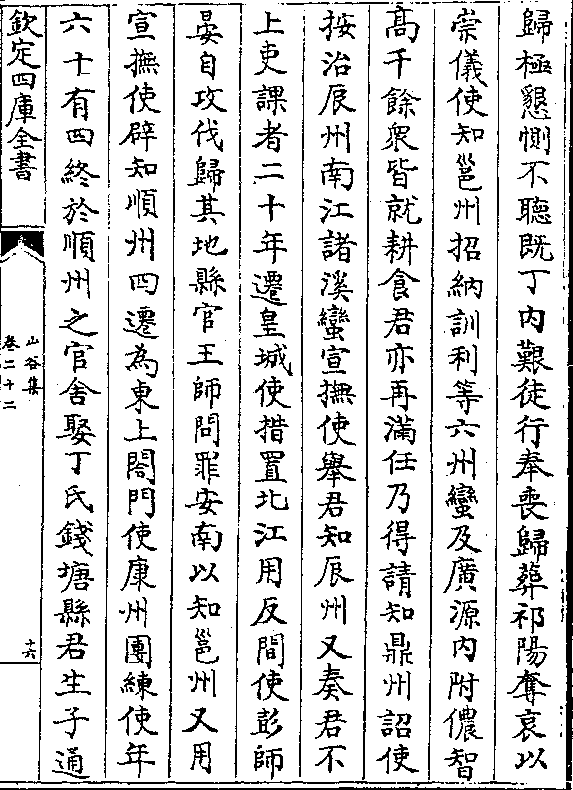 歸極懇惻不聽既丁內艱徒行奉喪歸葬祁陽奪哀以
崇儀使知邕州招納訓利等六州蠻及廣源內附儂智
髙千餘衆皆就耕食君亦再滿任乃得請知鼎州詔使
按治辰州南江諸溪蠻宣撫使舉君知辰州又奏君不
上吏課者二十年遷皇城使措置北江用反間使彭師
晏自攻伐歸其地縣官王師問罪安南以知邕州又用
宣撫使辟知順州四遷為東上閤門使康州團練使年
六十有四終於順州之官舍娶丁氏錢塘縣君生子通
欽定四庫全書
山谷集
卷二十二
十六